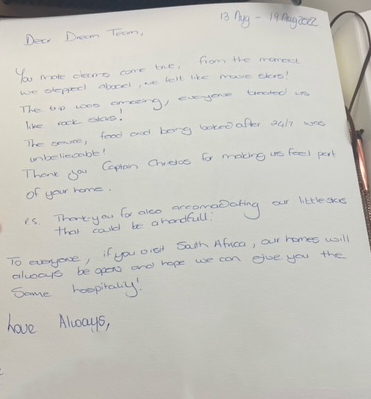 13 Aug - 19 Aug 2022
Dear Dream Team,
You made dreams come true, from the moment
we stepped aboard, we felt like movie stars!
The trip was amazing, everyone treated us
like rock stars!
The service, food and being looked after 24/7 was
unbelievable!
Thank you Captain for making us feel part
of your home.
P.S. Thank-you for also accomadating our little
that could be a handful!
To everyone, if you visit South Africa, our homes will
always be open and hope we can give you the
same hospitality!
Love Always,